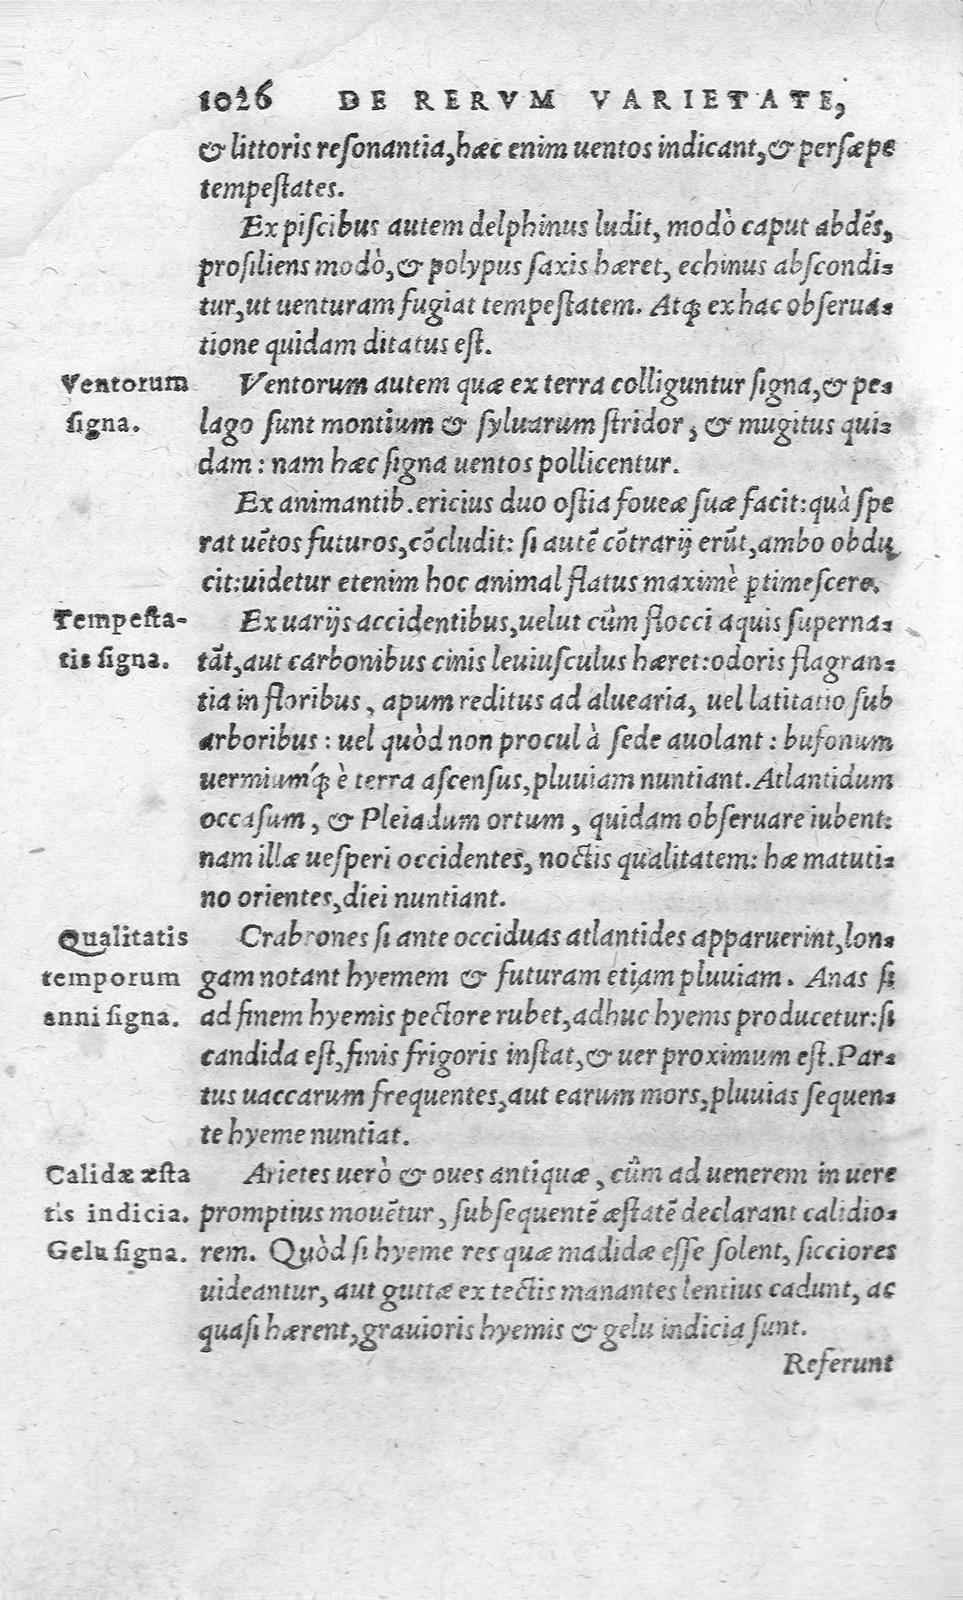 1026 DE RERVM VARIETATE,
& littoris reſonantia, hæc enim uentos indicant, & perſæpe
tempeſtates.
Ex piſcibus autem delphinus ludit, modò caput abdẽs,
proſiliens modò, & polypus ſaxis hæret, echinus abſcondi-
tur, ut uenturam fugiat tempeſtatem. Atq; ex hac obſerua-
tione quidam ditatus eſt.
Ventorum
ſigna.
Ventorum autem quæ ex terra colliguntur ſigna, & pe-
lago ſunt montium & ſyluarum ſtridor, & mugitus qui-
dam: nam hæc ſigna uentos pollicentur.
Ex animantib. ericius duo oſtia foueæ ſuæ facit: quà ſpe
rat uẽtos futuros, cõcludit: ſi autẽ cõtrarij erũt, ambo obdu
cit: uidetur etenim hoc animal flatus maximè ꝑtimeſcere.
Tempeſta-
tis ſigna.
Ex uarijs accidentibus, uelut cûm flocci aquis ſuperna-
tãt, aut carbonibus cinis leuiuſculus hæret: odoris flagran-
tia in floribus, apum reditus ad aluearia, uel latitatio ſub
arboribus: uel quòd non procul à ſede auolant: bufonum
uermiumq́; è terra aſcenſus, pluuiam nuntiant. Atlantidum
occaſum, & Pleiadum ortum, quidam obſeruare iubent:
nam illæ ueſperi occidentes, noctis qualitatem: hæ matuti-
no orientes, diei nuntiant.
Qualitatis
temporum
anni ſigna.
Crabrones ſi ante occiduas atlantides apparuerint, lon-
gam notant hyemem & futuram etiam pluuiam. Anas ſi
ad finem hyemis pectore rubet, adhuc hyems producetur: ſi
candida eſt, finis frigoris inſtat, & uer proximum eſt. Par-
tus uaccarum frequentes, aut earum mors, pluuias ſequen-
te hyeme nuntiat.
Calidæ æſta
tis indicia.
Gelu ſigna.
Arietes uerò & oues antiquæ, cûm ad uenerem in uere
promptius mouẽtur, ſubſequentẽ æſtatẽ declarant calidio-
rem. Quòd ſi hyeme res quæ madidæ eſſe ſolent, ſicciores
uideantur, aut guttæ ex tectis manantes lentius cadunt, ac
quaſi hærent, grauioris hyemis & gelu indicia ſunt.
Referunt